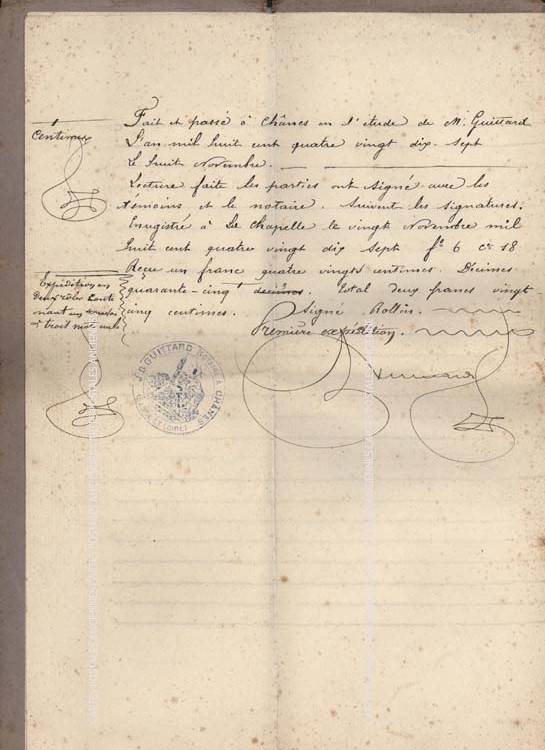 Fait et passé à Chânes en l'étude de M. Guittard
L'an mil huit cent quatre vingt dix-sept
Le huit Novembre.
Centimes
Lecture faite les parties ont signé avec les
témoins et le notaire. Suivent les signatures.
Enregistré à La Chapelle le vingt Novembre mil
huit cent quatre vingt dix sept f° 6 c° 18
Reçu un franc quatre vingts centimes. Décimes
quarante-cinq decimes. Total deux francs vingt-
cinq centimes. Signé Rollin.
Première expédition.
Expédition en
deux rôles conte
nant un
trois mots nuls
J.B. GUITTARD NOTAIRE A CHANES
Guittard